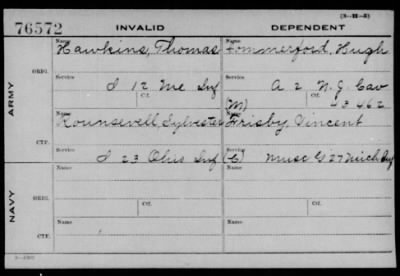 (3—111—3)
76572 INVALID DEPENDENT
Name Name
Hawkins, Thomas Sommerford, Hugh
ORIG.
Service Service
I 12 Me Inf A 2 N.J. Cav
Ctf. Ctf.
ARMY
(M) 43462
Name Name
Rounsevell, Sylvester Frisby, Vincent
CTF.
Service Service
I 23 Ohio Inf (C) Musc G 27 Mich Inf
Name Name
ORIG.
Service Ctf. Service Ctf.
NAVY
Name Name
CTF.
Service Service